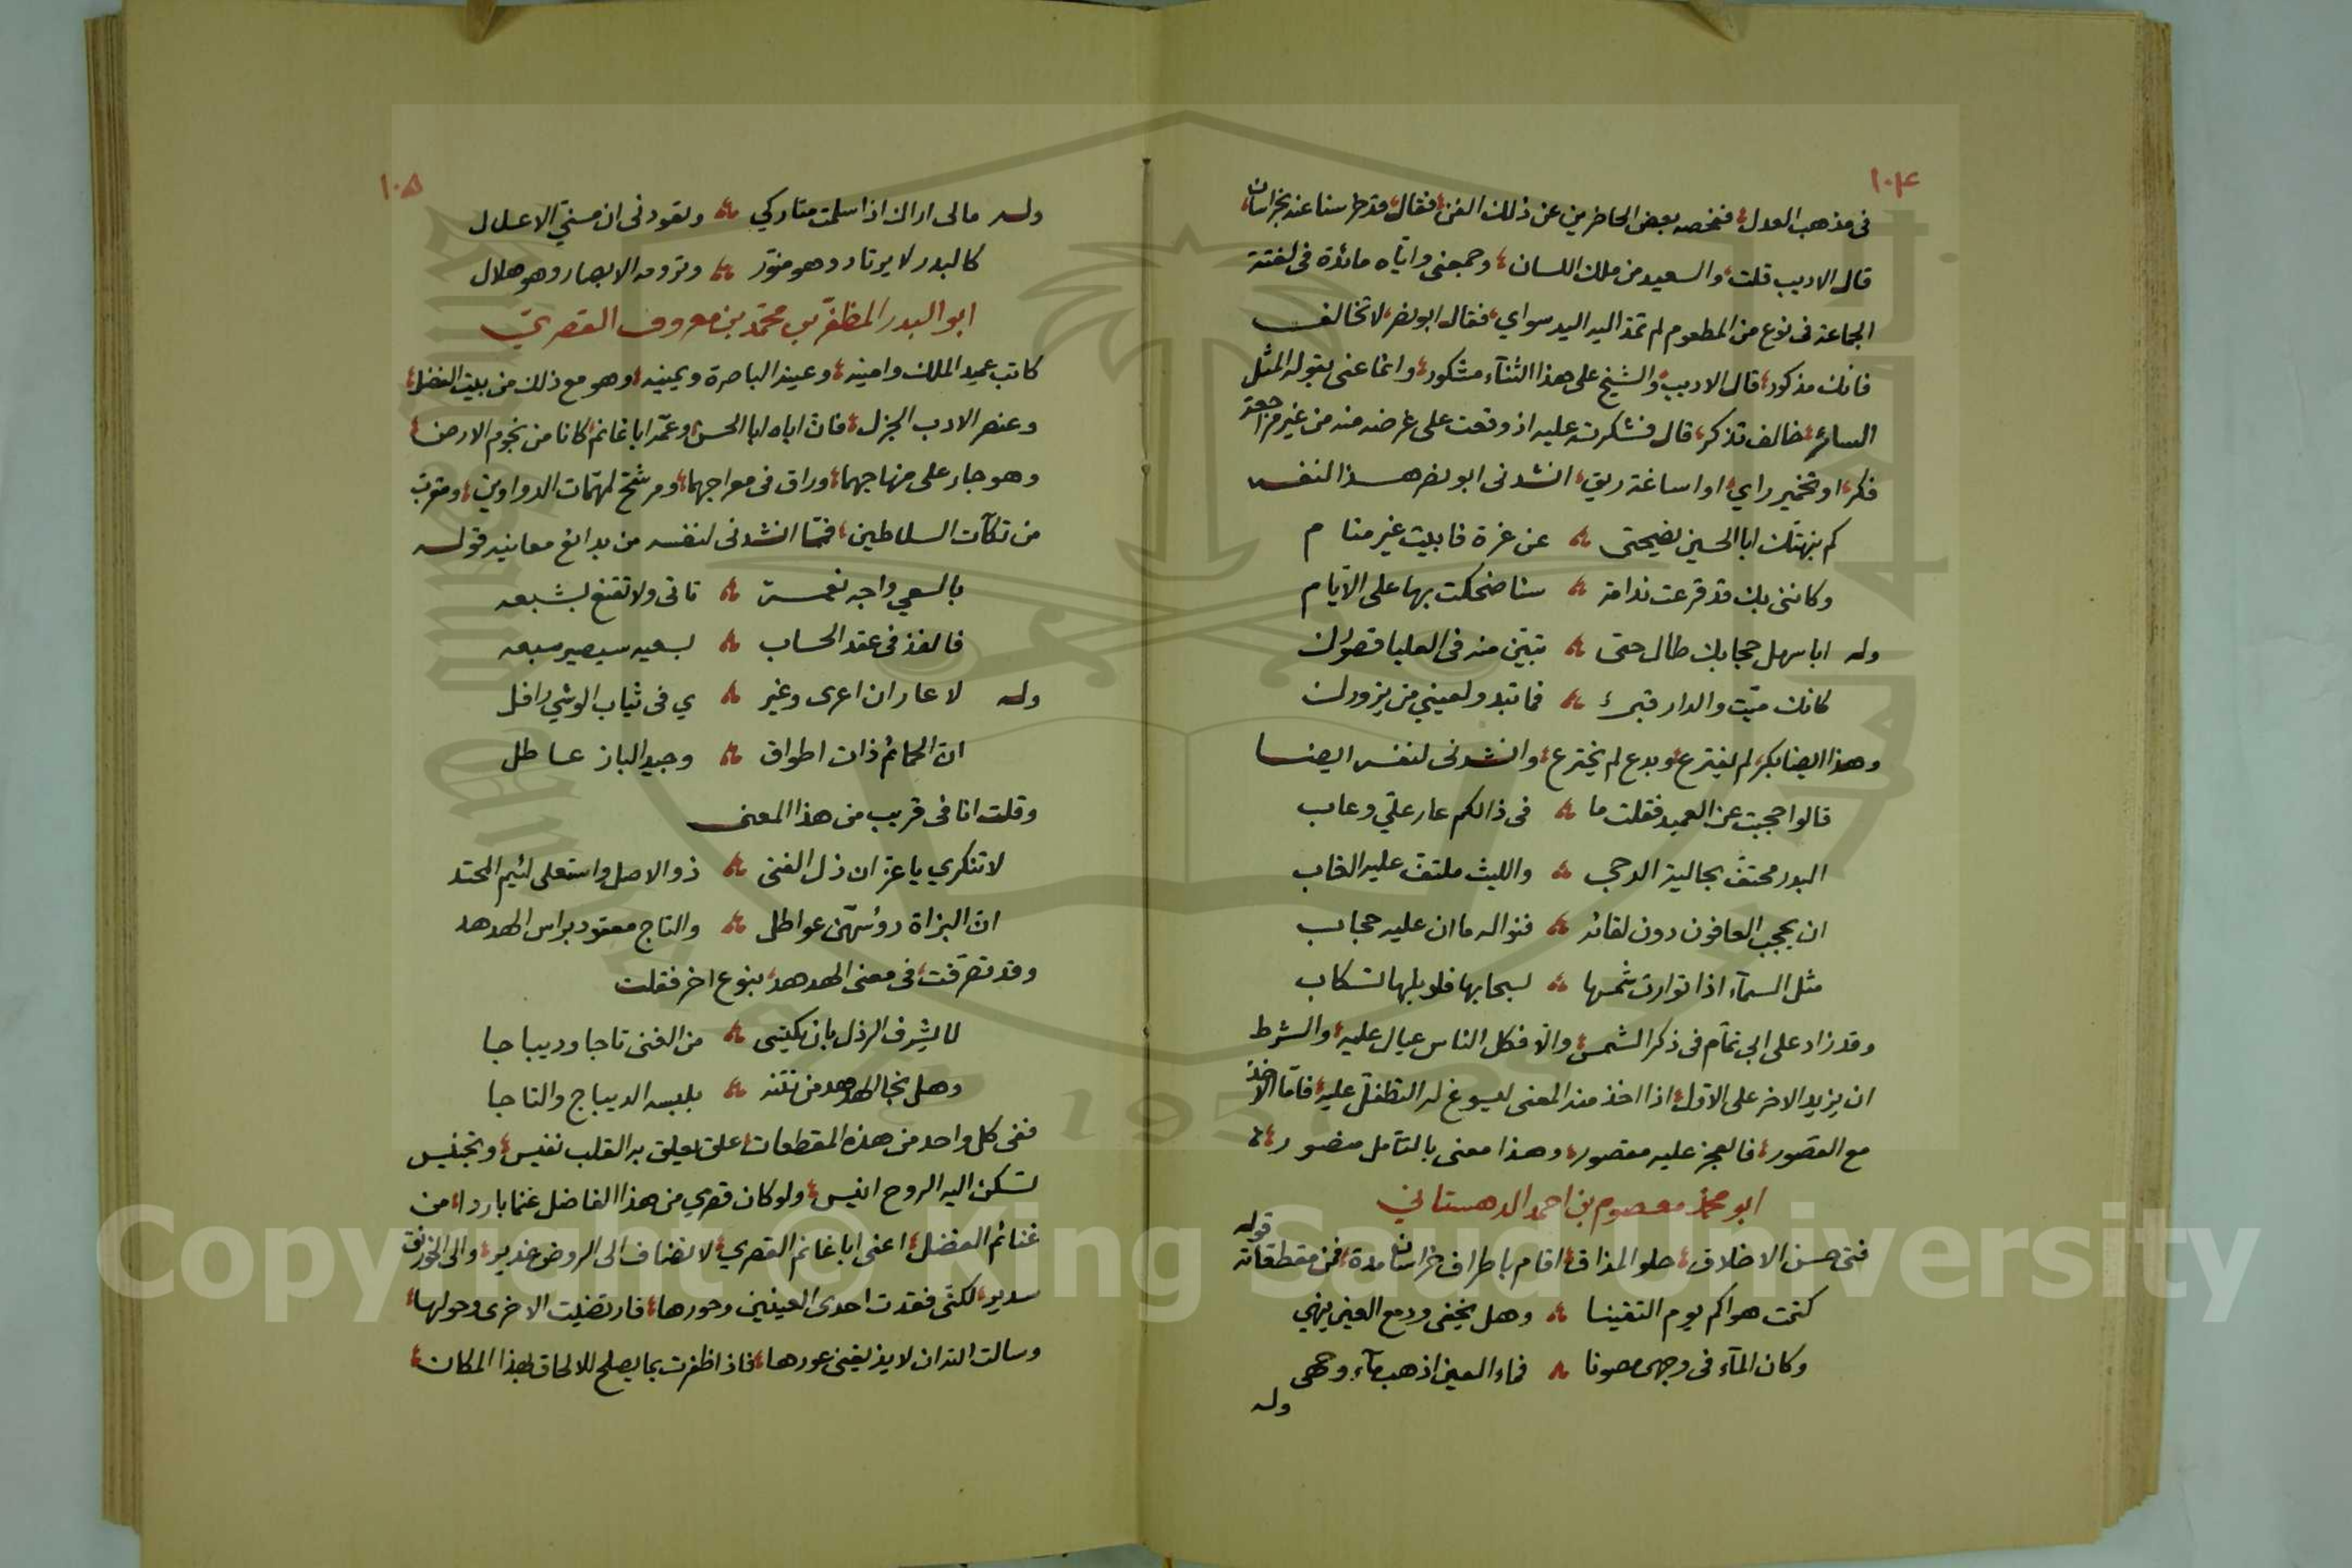 ١٠٤
فى مذهب العدل، فتفحصه بعض الحاضرين عن ذلك الفن، فقال، قد طرسنا عند بخراسان،
قال الاديب قلت، والسعيد من ملك اللسان، وجمعنى واياه مائدة فى لفتة
الجماعة فى نوع من المطعوم لم تمد اليه اليد سواي، فقال ابو نصر، لا تخالف
فانك مذكور، قال الاديب، والشيخ على هذا الثنآء مشكور، وانما عنى بقوله المثل
السائر، خالف تذكر، قال فشكرته عليه اذ وقعت على غرضه منه من غير مراجعة
فكر، او تخمير راي، او اساغة ريق، انشدنى ابو نصر هذا لنفسه
كم نبهتك ابا الحسين نصيحتى عن غرة فابيت غير منام
وكاننى بك قد قرعت ندامة سنا ضحكت بها على الايام
وله ابا سهل حجابك طال حتى تبيّن منه فى العليا قصورك
كانك ميّت والدار قبر فما تبدو لعيني من يزورك
وهذا ايضا بكر، لم يفترع، وبدع لم يخترع، وانشدنى لنفسه ايضا
قالوا حجبت عن العميد فقلت ما فى ذالكم عار علي وعاب
البدر محتفّ بجاليز الدجى والليث ملتفّ عليه الغاب
ان يحجب العافون دون لقائه فنواله ما ان عليه حجاب
مثل السمآء اذا توارت شمسها بسحابها فلوبلها تسكاب
وقد زاد على ابى تمّام فى ذكر الشمس، والّا فكل الناس عيال عليه، والشرط
ان يزيد الاخر على الاوّل، اذا اخذ منه المعنى ليسوغ له التطفّل عليه، فامّا الاخذ
مع القصور، فالعجز عليه مقصور، وهذا معنى بالتأمل منصور،
ابو محمد معصوم بن احمد الدهستاني
فتى حسن الاخلاق، حلو المذاق، اقام باطراف خراسان مدة، فمن مقطعاته قوله
كتمت هواكم يوم التقينا وهل يخفى ودمع العين ينهي
وكان المآء فى وجهى مصونا فماء العين اذهب مآء وجهى
وله
١٠٥
وله مالى اراك اذا سلمت متاركي وتعودنى ان مسّنى الاعلال
كالبدر لا يرتاد وهو منوّر وترومه الابصار وهو هلال
ابو البدر المظفّر بن محمّد بن معروف القصريّ
كاتب عميد الملك وامينه، وعينه الباصرة ويمينه، وهو مع ذلك من بيت الفضل،
وعنصر الادب الجزل، فان اباه ابا الحسن، وعمّه ابا غانم، كانا من نجوم الارض،
وهو جار على منهاجهما، وراق فى معراجهما، ومرشّح لمهمّات الدواوين، ومقرب
من تكآت السلاطين، فممّا انشدنى لنفسه من بدائع معانيه قوله
بالسعي واجه نعمة تاتى ولا تقنع بشبعه
فالفذ فى عقد الحساب بسعيه سيصير سبعه
وله لا عار ان اعرى وغير ي فى ثياب الوشي رافل
ان الحمائم ذات اطواق وجيد الباز عاطل
وقلت انا فى قريب من هذا المعنى
لا تنكري يا عز ان ذل الفتى ذو الاصل واستعلى لئيم المحتد
ان البزاة رؤسهنّ عواطل والتاج معقود براس الهدهد
وقد تصرّفت، فى معنى الهدهد، بنوع اخر فقلت
لا يشرف الرذل بان يكتسى من الغنى تاجا وديباجا
وهل نجا الهدهد من نتنه بلبسه الديباج والتاجا
ففى كل واحد من هذه المقطعات، علق يعلق به القلب نفيس، وتجنيس
تسكن اليه الروح انيس، ولو كان قصري من هذا الفاضل غنما باردا، من
غنائم الفضل، اعنى ابا غانم القصري، لانضاف الى الروض غدير، والى الخورنق
سدير، لكنّى فقدت احدى العينين وحورها، فارتضيت الاخرى وحولها،
وسالت الله ان لا يذيقنى عورها، فاذا ظفرت بما يصلح للالحاق بهذا المكان،